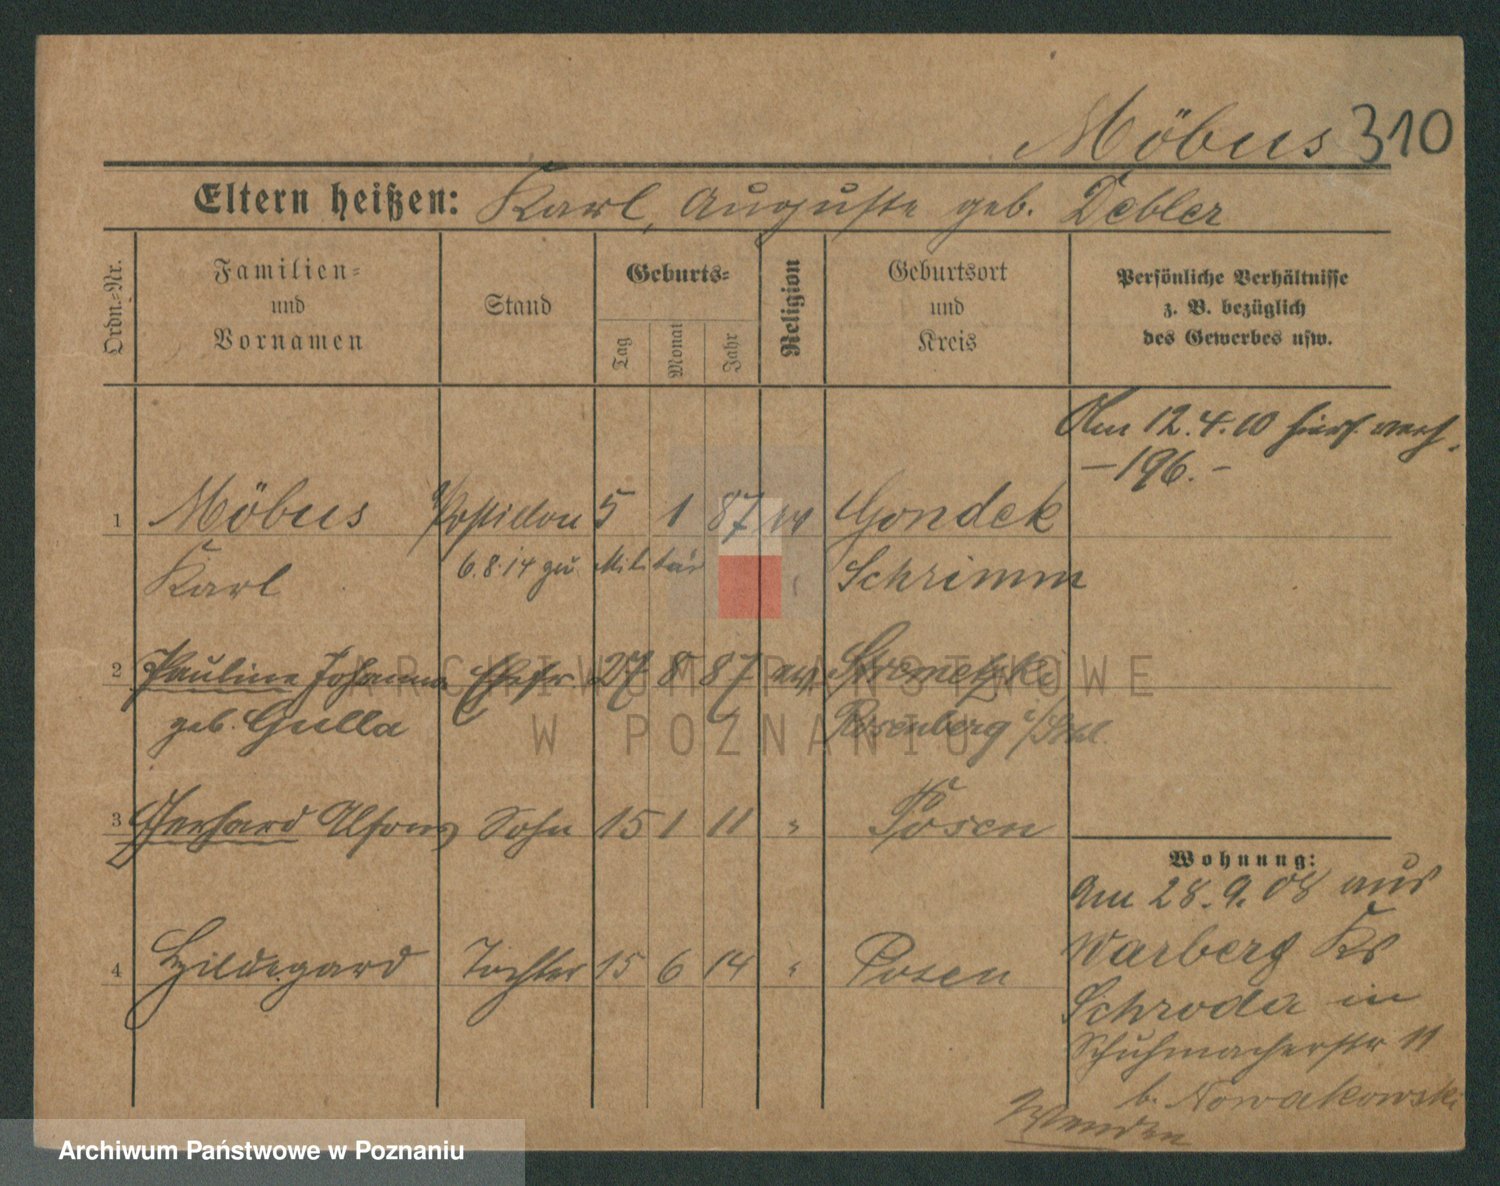 Möbus 310
Eltern heißen: Karl, Auguste geb. Debler
Ordn.=Nr.
Familien=
und
Vornamen
Stand
Geburts=
Tag
Monat
Jahr
Religion
Geburtsort
und
Kreis
Persönliche Verhältnisse
z. B. bezüglich
des Gewerbes usw.
Am 12.4.10 verh.
– 196. –
1 Möbus Postillon 5 1 87 ev Gondek
Karl 6.8.14 zu Militär Schrimm
2 Pauline Johanna Ehefr. 27 8 87 ev.
geb. Gulla Rosenberg
3 Gerhard Alfons Sohn 15 1 11 " Posen
4 Hildegard Tochter 15 6 14 " Posen
Wohnung:
Am 28.9.08 aus
Warberg Ks
Schroda in
Schuhmacherstr 11
b. Nowakowski
Wenden
ARCHIWUM PAŃSTWOWE
W POZNANIU
Archiwum Państwowe w Poznaniu